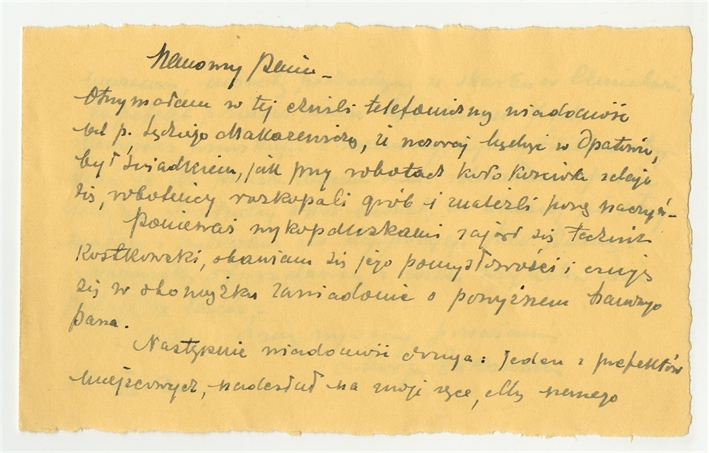 Szanowny Panie –
Otrzymałam w tej chwili telefoniczną wiadomość
od p. Sędziego Makarewicza, iż wczoraj będąc w Opatowie,
był świadkiem, jak przy robotach koło kościoła zdaje
się, robotnicy rozkopali grób i znaleźli parę naczyń –
Ponieważ wykopaliskami zajął się
Kostkowski, obawiam się jego pomysłowości i czuję
się w obowiązku zawiadomić o powyższem Szanownego
Pana.
Następnie wiadomość druga: Jeden z prefektów
miejscowych, nadesłał na moje ręce, dla